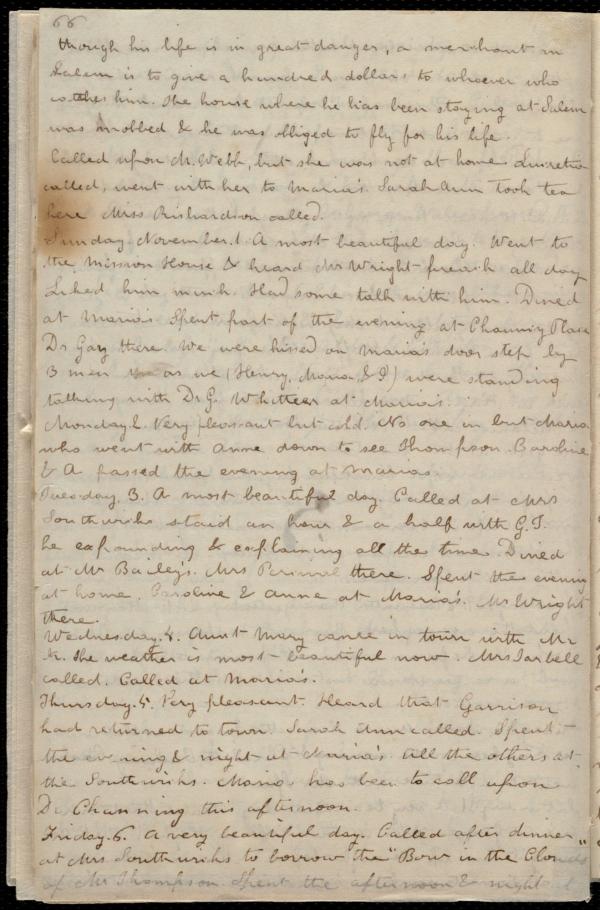 66
though his life is in great danger, a merchant in
Salem is to give a hundred dollars to whoever who
catches him. The house where he has been staying at Salem
was mobbed & he was obliged to fly for his life.
Called upon M. Webb, but she was not at home. Lucretia
called, went with her to Maria's. Sarah Ann took tea
here Miss Richardson called.
Sunday November 1. A most beautiful day. Went to
the Mission House & heard Mr Wright preach all day
Liked him much. Had some talk with him. Dined
at Maria's Spent part of the evening at Chauncy Place
Dr Gay there. We were hissed on Maria's door step by
3 men as we (Henry, Maria & I) were standing
talking with Dr G. Whittier at Maria's.
Monday 2. Very pleasant but cold. No one in but Maria
who went with Anne down to see Thompson. Caroline
& A passed the evening at Maria's.
Tuesday, 3. A most beautiful day. Called at Mrs
Southwicks staid an hour & a half with G.T.
he expounding & explaining all the time. Dined
at Mr Bailey's. Mrs Percival there. Spent the evening
at home. Caroline & Anne at Maria's. Mr Wright
there.
Wednesday. 4. Aunt Mary came in town with Mr
K. The weather is most beautiful now. Mrs Tarbell
called. Called at Maria's.
Thursday. 5. Very pleasant. Heard that Garrison
had returned to town Sarah Ann called. Spent
the evening & night at Maria's. all the others at
the Southwicks. Maria has been to call upon
Dr Channing this afternoon.
Friday. 6. A very beautiful day. Called after dinner
at Mrs Southwicks to borrow the "Bow in the Clouds"
of Mr Thompson. Spent the afternoon & night